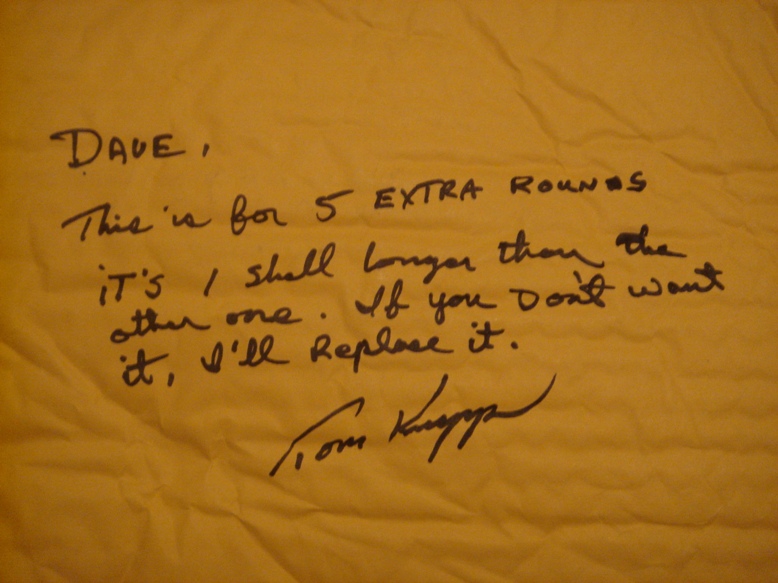 DAVE,
This is for 5 EXTRA ROUNDS
iT'S 1 shell longer than the
other one. If you Don't want
it, I'll Replace it.
Tom Knapp